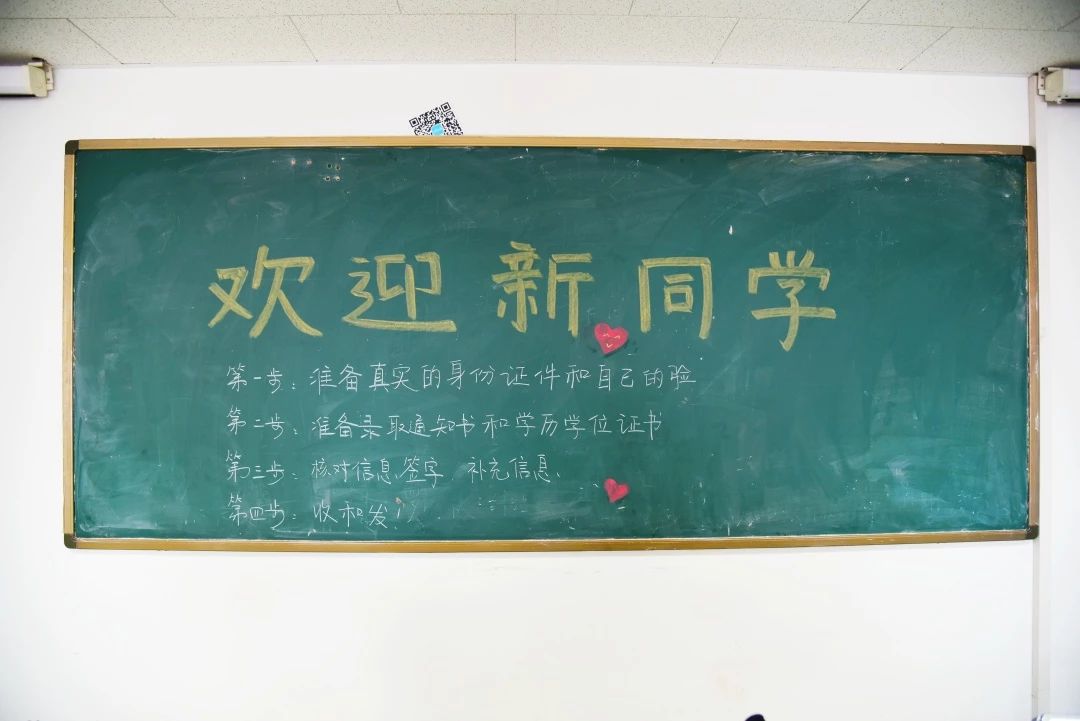 欢迎新同学
第一步：准备真实的身份证件和自己的验
第二步：准备录取通知书和学历学位证书
第三步：核对信息、签字、补充信息、
第四步：收和发！